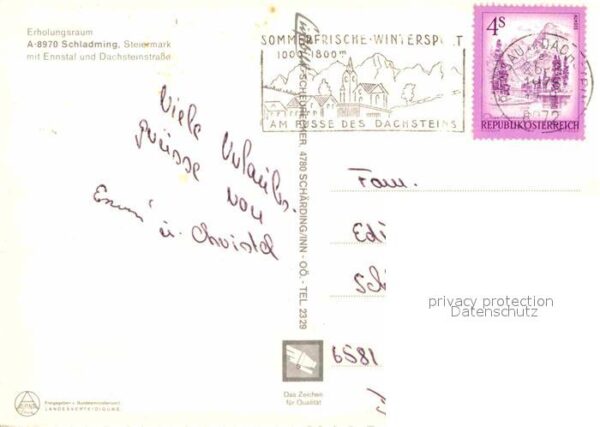 Erholungsraum
A-8970 Schladming, Steiermark
mit Ennstal und Dachsteinstraße
SOMMERFRISCHE·WINTERSPORT
1000-1800m
AM FUSSE DES DACHSTEINS
4S
REPUBLIK ÖSTERREICH
8972
Viele Urlaubs-
grüsse von
u. Christel
4780 SCHÄRDING/INN - OÖ. - TEL. 2329
Fam.
Edi
Sch
6581
privacy protection
Datenschutz
Das Zeichen
für Qualität
LANDESVERTEIDIGUNG